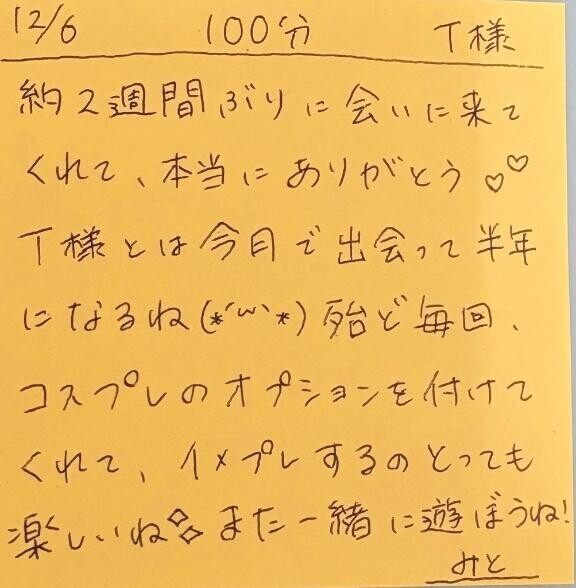 12/6 100分 T様
約2週間ぶりに会いに来て
くれて、本当にありがとう♡♡
T様とは今月で出会って半年
になるね(*´ω`*)殆ど毎回、
コスプレのオプションを付けて
くれて、イメプレするのとっても
楽しいね また一緒に遊ぼうね!
みと